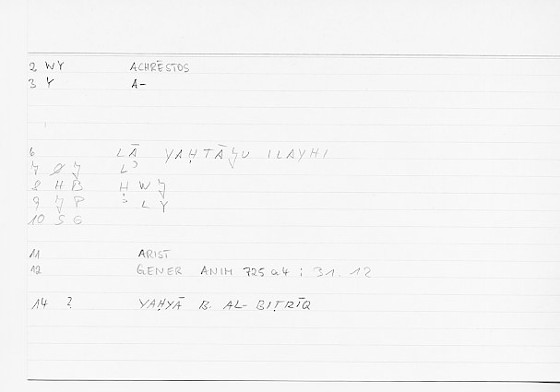 2 WY ACHRĒSTOS
3 Y A-
6 LĀ YAḤTĀǦU ILAYHI
7 Ø Ǧ Lʾ
8 H B Ḥ W Ǧ
9 Ǧ P ʾ L Y
10 S G
11 ARIST
12 GENER ANIM 725 a 4 ; 31.12
14 ? YAḤYĀ B. AL-BIṬRĪQ